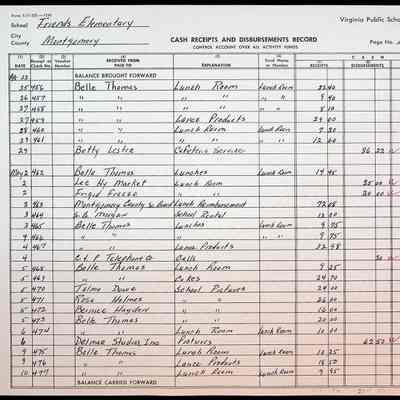 School Friends Elementary
Virginia Public Scho
City
County Montgomery
CASH RECEIPTS AND DISBURSEMENTS RECORD
CONTROL ACCOUNT OVER ALL ACTIVITY FUNDS
Page No.
DATE Receipt or Check No. Voucher Number RECEIVED FROM PAID TO EXPLANATION Fund Name or Number RECEIPTS DISBURSEMENTS
BALANCE BROUGHT FORWARD
25 456 Belle Thomas Lunch Room Lunch Room 22.40
26 457 " " " " " " 9 40
27 458 " " " " " " 8 10
27 459 " " Lance Products 24 00
28 460 " " Lunch Room Lunch Room 7 20
29 461 " " " " " " 12 00
29 Betty Leslie Cafeteria Services 96 22
May 2 462 Belle Thomas Lunches Lunch Room 14 45
2 Lee Hy Market Lunch Room 25 00
2 Frigid Freeze " " 20 00
3 463 Montgomery County Sc Board Lunch Reimbursement 72 08
3 464 School Rental 12 00
3 465 Belle Thomas Lunches Lunch Room 9 75
4 466 " " " " " " 9 75
4 467 " " Lance Products 22 98
4 C & P Telephone Co Calls
5 468 Belle Thomas Lunch Room 9 25
5 469 " " Cokes 24 70
5 470 School Pictures 24 00
5 471 Rosa Holmes " " 26 00
5 472 Bernice Hayden " " 16 00
5 473 Belle Thomas " " 20 00
6 474 " " Lunch Room Lunch Room 10 00
6 Delmar Studios Inc Pictures 62 52
9 475 Belle Thomas Lunch Room Lunch Room 18 25
9 476 " " Lance Products 18 50
10 477 " " Lunch Room Lunch Room 9 95
BALANCE CARRIED FORWARD